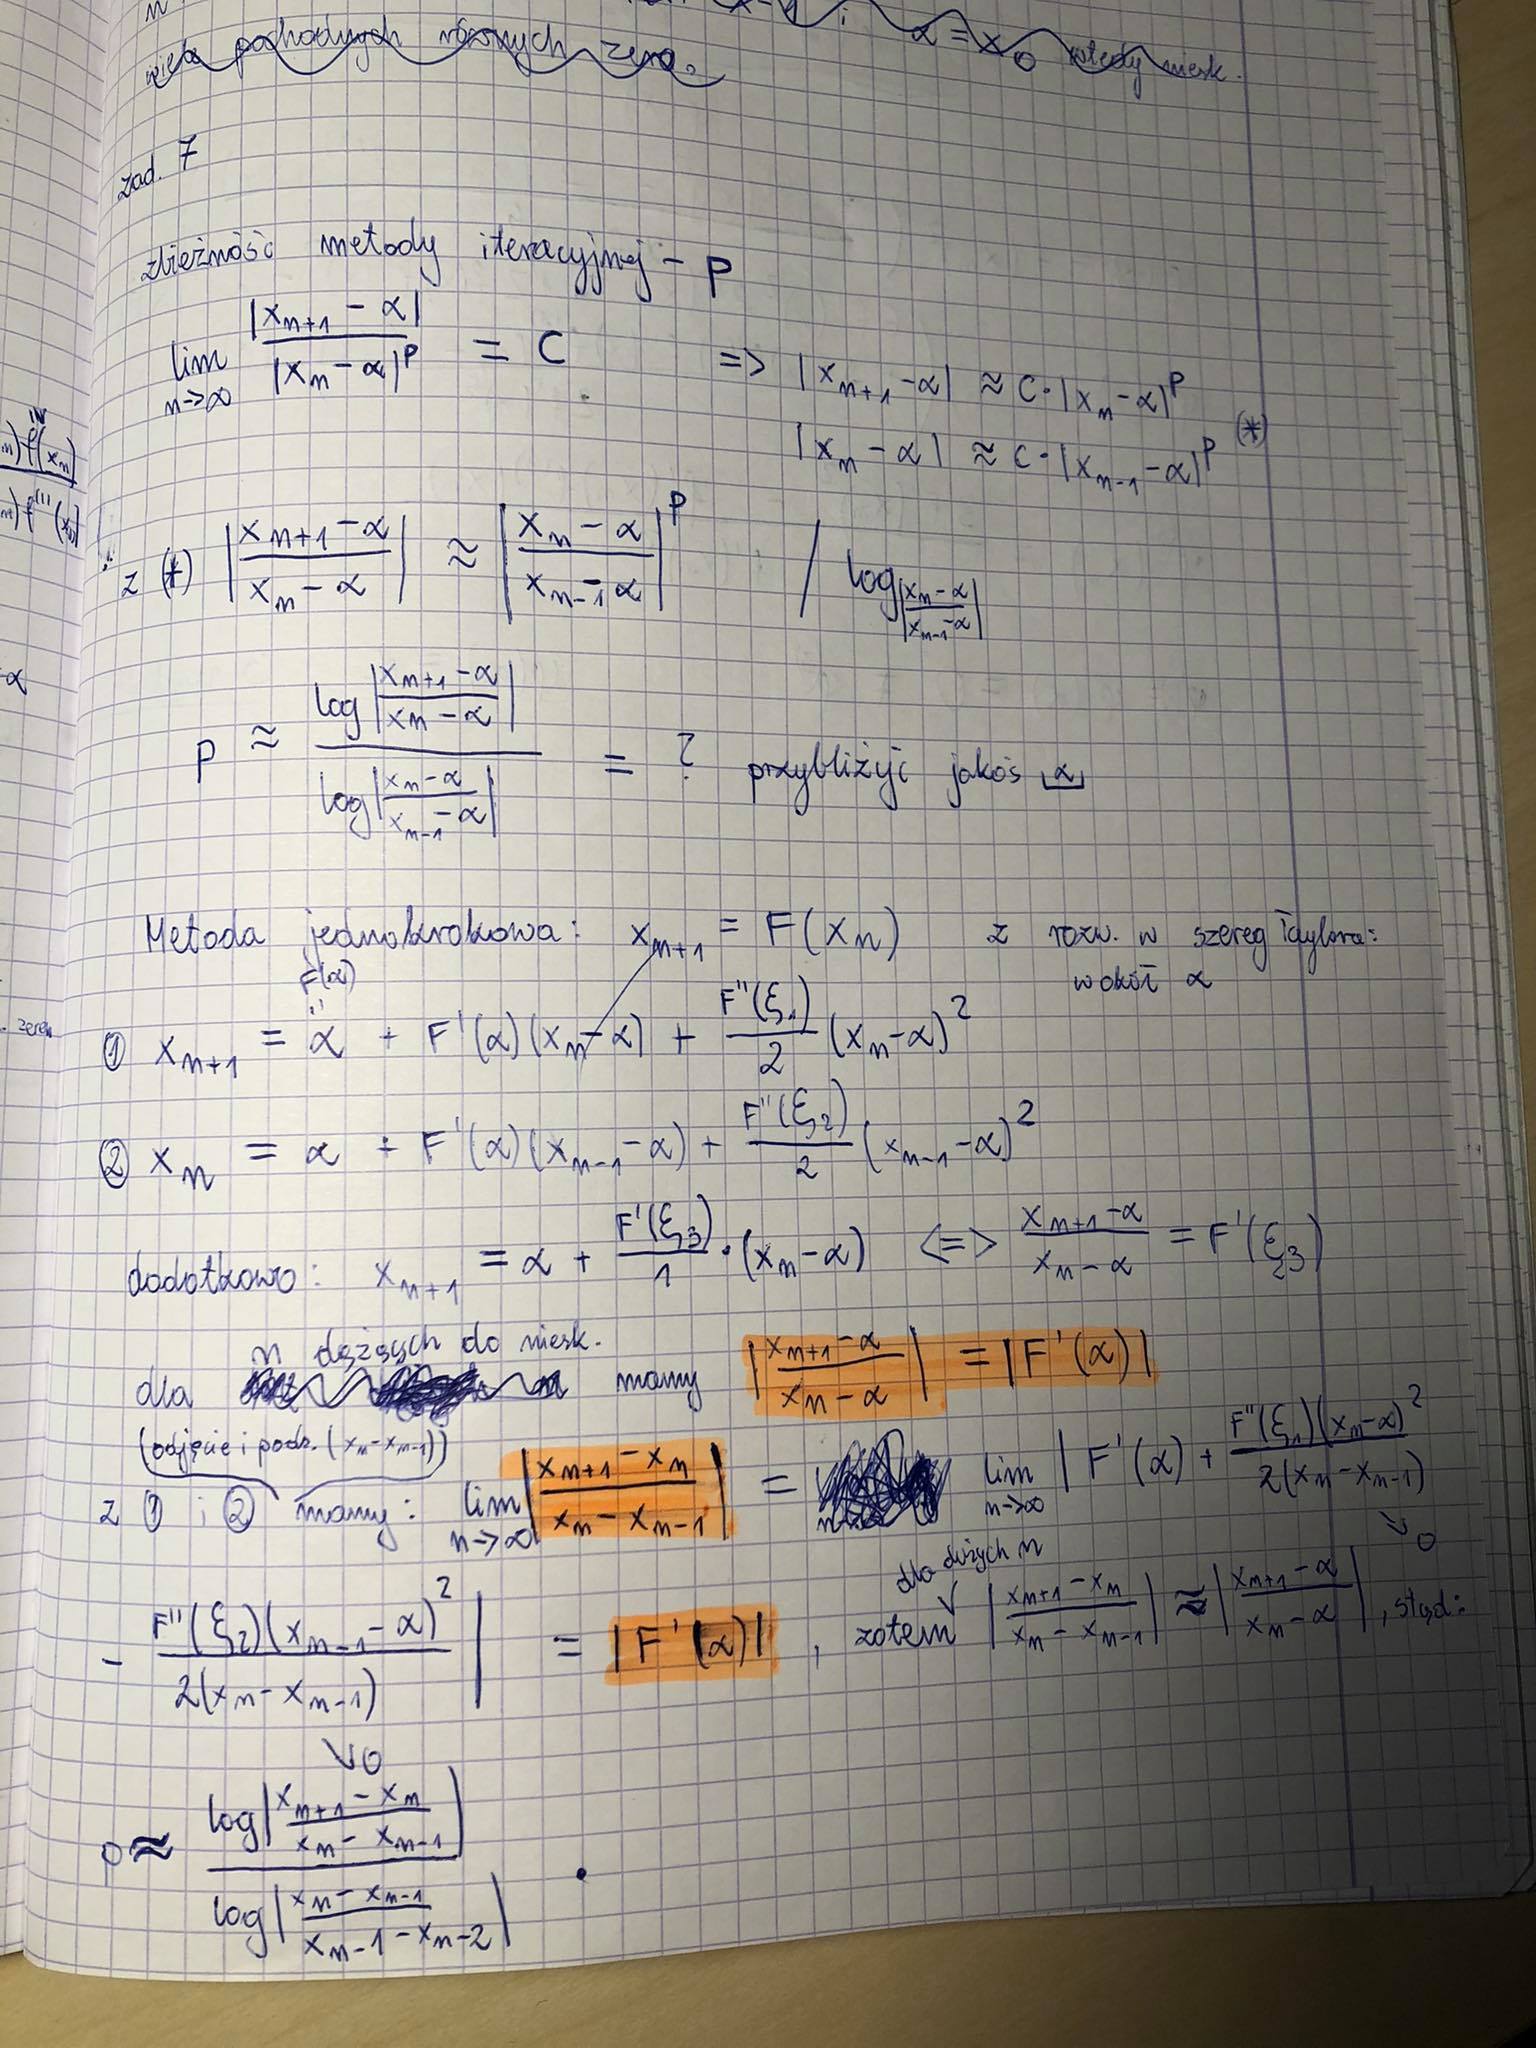 więc pochodnych równych zero. α = x₀ wtedy niesk.
zad. 7
zbieżność metody iteracyjnej - p
lim n->∞ |x_{n+1} - α| / |x_n - α|^p = C => |x_{n+1} - α| ≈ C·|x_n - α|^p
|x_n - α| ≈ C·|x_{n-1} - α|^p (*)
z (*) |(x_{n+1} - α)/(x_n - α)| ≈ |(x_n - α)/(x_{n-1} - α)|^p / log_{|(x_n - α)/(x_{n-1} - α)|}
p ≈ log|(x_{n+1} - α)/(x_n - α)| / log|(x_n - α)/(x_{n-1} - α)| = ? przybliżyć jakoś α
Metoda jednokrokowa: x_{n+1} = F(x_n) z rozw. w szereg Taylora:
wokół α
F(α)
① x_{n+1} = α + F'(α)(x_n - α) + F''(ξ₁)/2 (x_n - α)²
② x_n = α + F'(α)(x_{n-1} - α) + F''(ξ₂)/2 (x_{n-1} - α)²
dodatkowo: x_{n+1} = α + F'(ξ₃)/1 · (x_n - α) <=> (x_{n+1} - α)/(x_n - α) = F'(ξ₃)
n dążących do niesk.
dla mamy |(x_{n+1} - α)/(x_n - α)| = |F'(α)|
(odjęcie i podz. (x_n - x_{n-1}))
z ① i ② mamy: lim n->∞ |(x_{n+1} - x_n)/(x_n - x_{n-1})| = lim n->∞ | F'(α) + F''(ξ₁)(x_n - α)²/2(x_n - x_{n-1})
↘0
dla dużych n
- F''(ξ₂)(x_{n-1} - α)²/2(x_n - x_{n-1}) | = |F'(α)|, zatem |(x_{n+1} - x_n)/(x_n - x_{n-1})| ≈ |(x_{n+1} - α)/(x_n - α)|, stąd:
↘0
p ≈ log|(x_{n+1} - x_n)/(x_n - x_{n-1})| / log|(x_n - x_{n-1})/(x_{n-1} - x_{n-2})| .